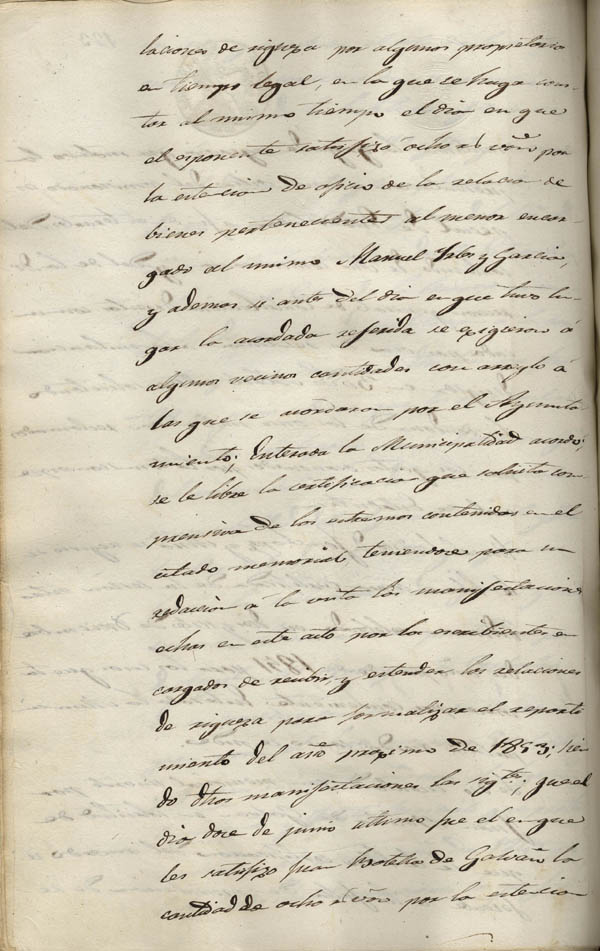 laciones de riqueza por algunos propietarios
en tiempo legal, en la que se haga cons-
tar al mismo tiempo el dia en que
el esponente satisfizo ocho r.s von por
la estencion de oficio de la relacion de
bienes pertenecientes al menor encar-
gado al mismo Manuel y Garcia,
y ademas si antes del dia en que tuvo lu-
gar la acordada referida se exigieron á
algunos vecinos cantidades con arreglo á
las que se acordaron por el Ayunta
miento; Enterada la Municipalidad acordo;
se le libre la certificacion que solicita com-
prensiva de los estremos contenidos en el
citado memorial teniendose para su
redaccion á la vista las manifestaciones
echas en este acto por los escribientes en
cargados de recibir y estender las relaciones
de riqueza para formalizar el reparti
miento del año proximo de 1853; sien
do dhas manifestaciones las sigtes; que el
dia doce de junio ultimo fue el en que
les satisfizo Juan Botella de Galvañ la
cantidad de ocho r.s von por la estencion